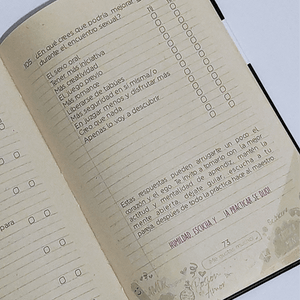 105. ¿En qué crees que podría mejorar
durante el encuentro sexual?
El sexo oral
Tener más iniciativa
Más creatividad
El juego previo
Más romance
Liberarse de tabúes
Más seguridad en sí misma/o
En juzgar menos y disfrutar más
Creo que nada
Apenas lo voy a descubrir
Estas respuestas pueden arrugarte un poco el
corazón y el ego. Te invito a tomarlo con la mejor
actitud y mentalidad de aprendiz, mantén la
mente abierta, déjate guiar, escucha a tu
pareja, después de todo la práctica hace al maestro.
HUMILDAD, ESCUCHA Y... ¡A PRACTICAR SE DIJO!
73
para